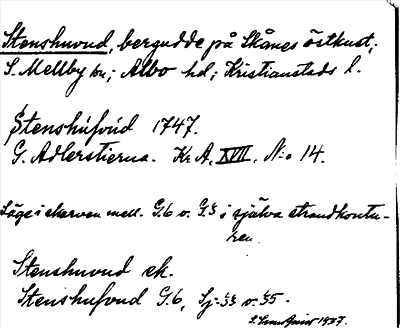 Stenshuvud, bergudde på Skånes östkust;
S. Mellby sn; Albo hd; Kristianstads l.
Stenshúfvúd 1747.
G. Adlerstierna. Kr A, XVIII, N:o 14.
Läge i skarven mell. G.6 o. G.5 i själva strandkontu-
ren.
Stenshuvud ek.
Stenshufvud G.6, Sj:
1937.